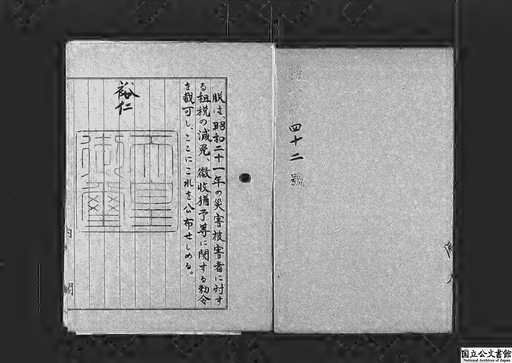 四十二
朕は、昭和二十一年の災害被害者に対す
る租税の減免、徴收猶予等に関する勅令
を裁可し、ここにこれを公布せしめる。
裕仁
天皇
御璽
国立公文書館
National Archives of Japan